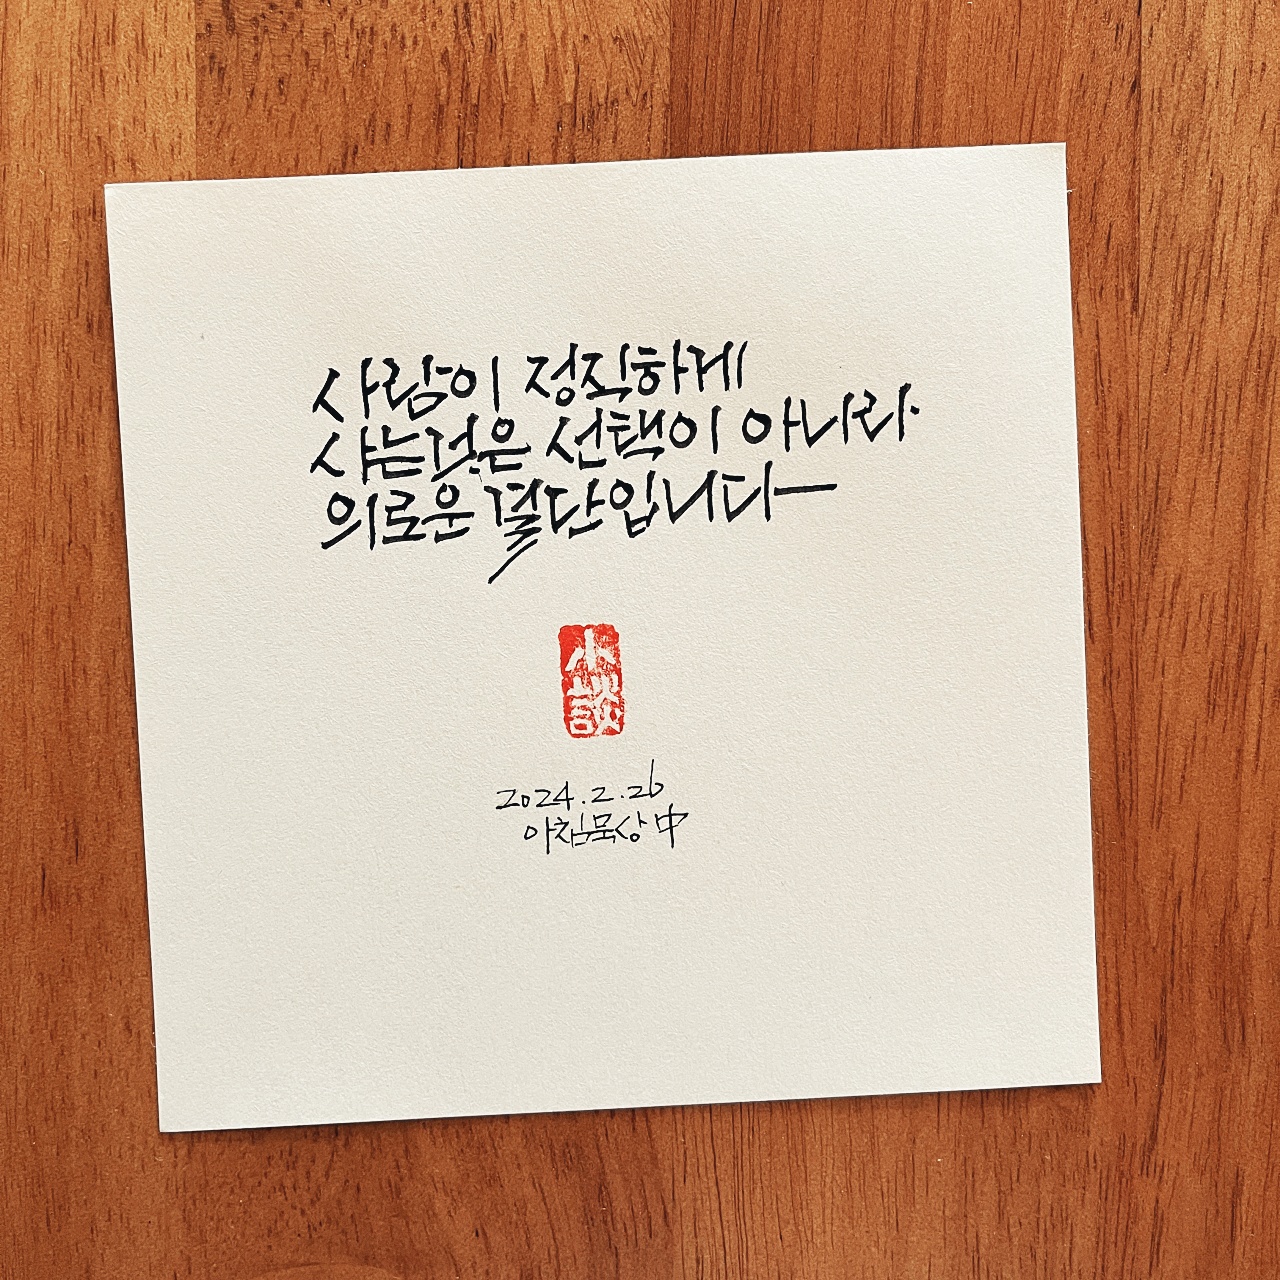 사람이 정직하게
사는것은 선택이 아니라
의로운 결단입니다
小
談
2024.2.26
아침묵상 中